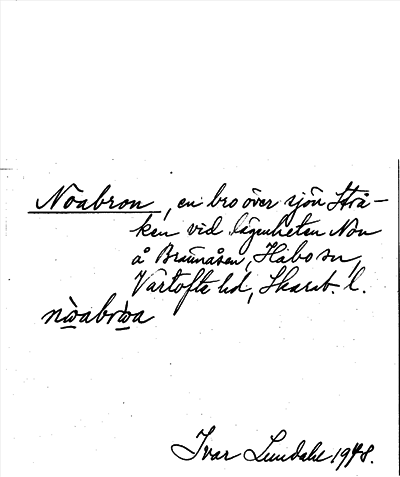 Noabron, en bro över sjön Strå-
ken vid lägenheten Non
å Brunnåsen, Habo sn,
Vartofta hd, Skarab. l.
nωabrωa
Ivar Lundahl 1948.